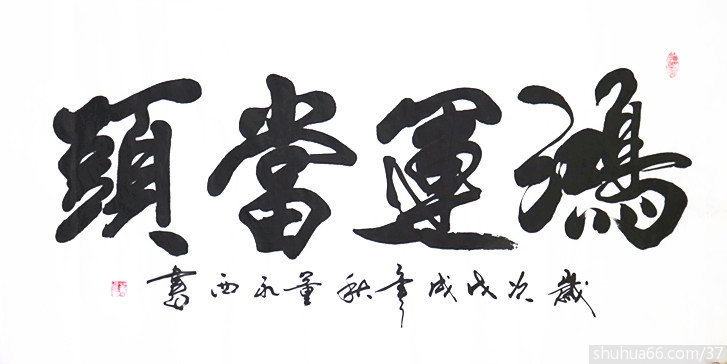 鴻運當頭
歲次戊戌年秋董永西書
shuhua66.com/37